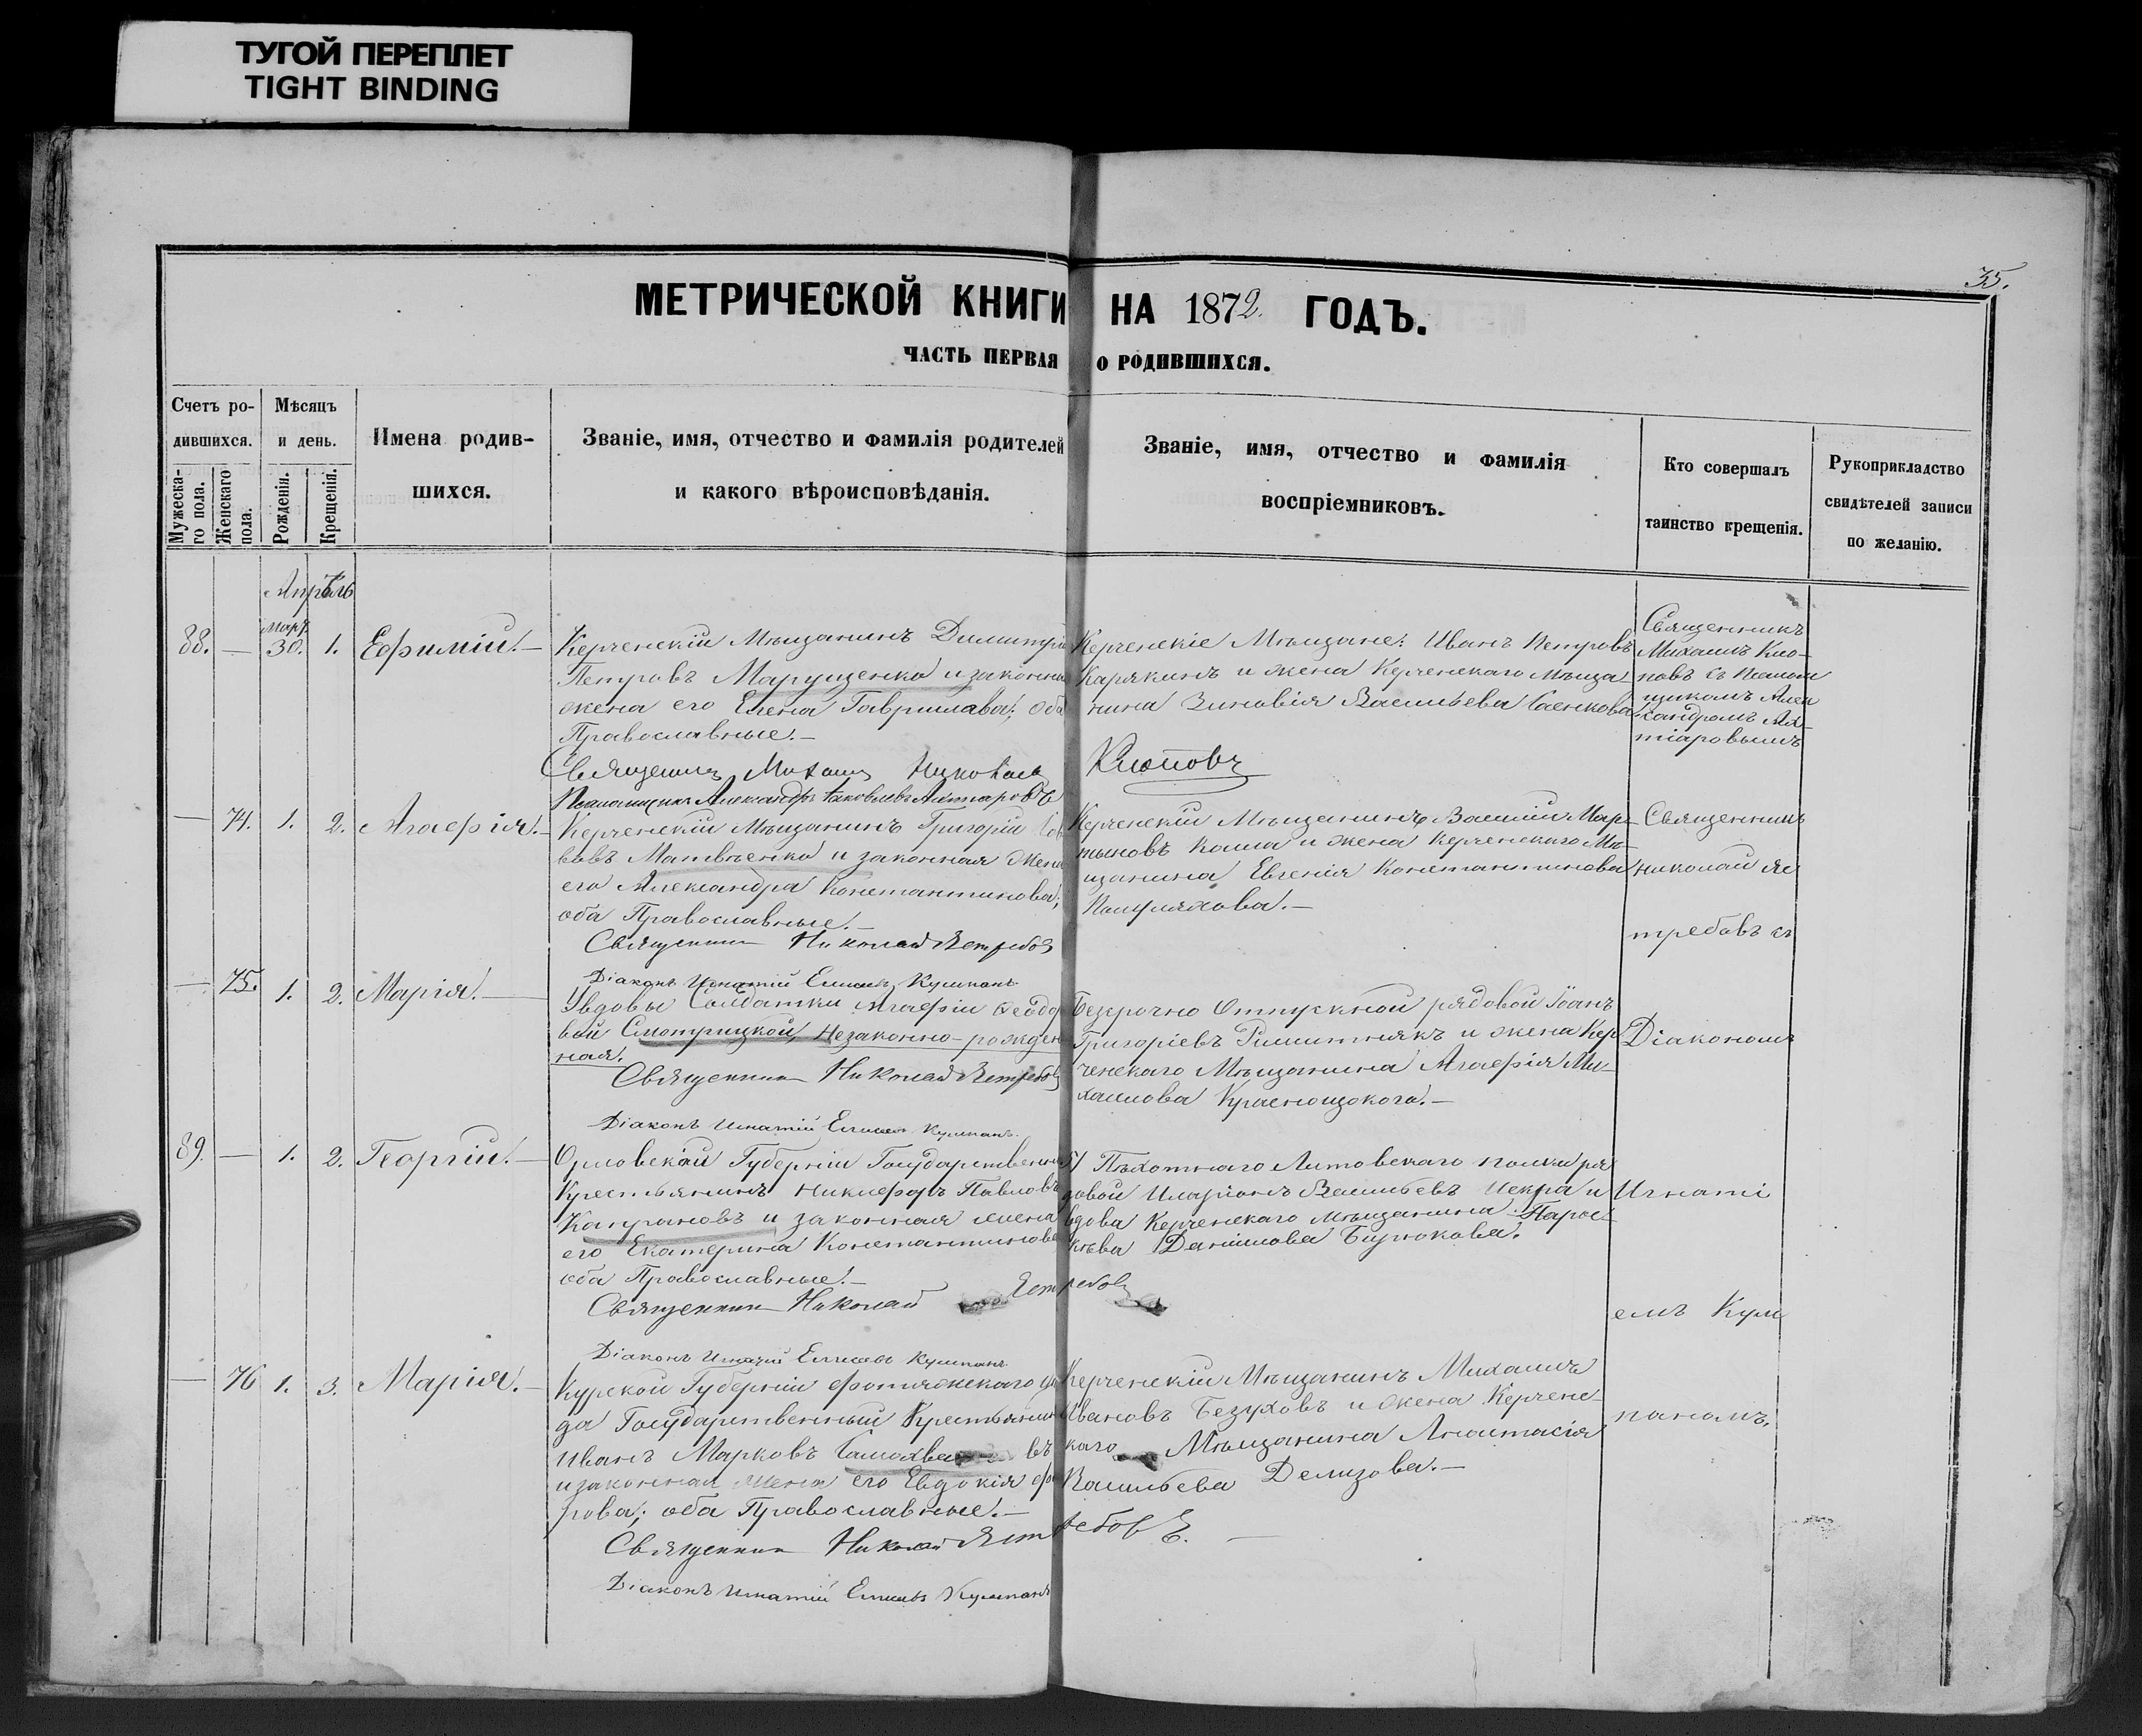 ТУГОЙ ПЕРЕПЛЕТ
TIGHT BINDING
35.
МЕТРИЧЕСКОЙ КНИГИ НА 1872. ГОДЪ.
ЧАСТЬ ПЕРВАЯ О РОДИВШИХСЯ.
Счетъ ро-
дившихся.
Мужеска-
го пола.
Женскаго
пола.
Мѣсяцъ
и день.
Рожденія.
Крещенія.
Имена родив-
шихся.
Званіе, имя, отчество и фамилія родителей
и какого вѣроисповѣданія.
Званіе, имя, отчество и фамилія
воспріемниковъ.
Кто совершалъ
таинство крещенія.
Рукоприкладство
свидѣтелей записи
по желанію.
Апрѣль
88. — Март. 30. 1. Ефимій. —
Керченскій Мѣщанинъ Димитрій
Петровъ Марущенко и законна
жена его Елена Гаврилава; оба
Православные. —
Священникъ Михаилъ Николаевъ Клоповъ
Псаломщикъ Александръ Яковлевъ
Керченскіе Мѣщане: Иванъ Петровъ
Карякинъ и жена Керченскаго Мѣща
нина Зиновія Васильева Саенкова
Священникъ
Михаилъ Кло-
повъ съ Псалом
щикомъ Алек
сандромъ
— 74. 1. 2. Агафія. —
Керченскій Мѣщанинъ Григорій
Матвѣенко и законная жена
его Александра Константинова;
оба Православные. —
Священникъ Николай Ястребов
Діаконъ Игнатій Елисеевъ
Керченскій Мѣщанинъ Василій Мар-
тыновъ и жена Керченскаго Мѣ-
щанина Евгенія Константинова
Священникъ
Николай Яс
требовъ съ
— 75. 1. 2. Марія. —
У вдовы Солдатки Агафіи Ѳеодо
вой Смотрицкой, незаконно-рожден
ная.
Священникъ Николай Ястребов
Діаконъ Игнатій Елисеевъ
Безсрочно Отпускной рядовой Іоанъ
Григоріевъ и жена Кер
ченскаго Мѣщанина Агафія Ми-
хаилова Краснощокого. —
Діакономъ
89. — 1. 2. Георгій. —
Орловской Губерніи Государственный
Крестьянинъ Никифоръ Павловъ
и законная жена
его Екатерина Константинова
оба Православные. —
Священникъ Николай Ястребовъ
Діаконъ Игнатій Елисеевъ
51 Пѣхотнаго Литовскаго полка ря
довой Иларіонъ Васильевъ Искра и
вдова Керченскаго Мѣщанина Парас-
кѣва Даніилова Бирюкова.
Игнаті
емъ
— 76 1. 3. Марія. —
Курской Губерніи
да Государственный Крестьянин
Иванъ Марковъ
и законная жена его Евдокія
рова; оба Православные. —
Священникъ Николай Ястребовъ. —
Діаконъ Игнатій Елисеевъ
Керченскій Мѣщанинъ Михаилъ
Ивановъ Безуховъ и жена Керченс-
каго Мѣщанина Анастасія
Васильева —
паномъ.